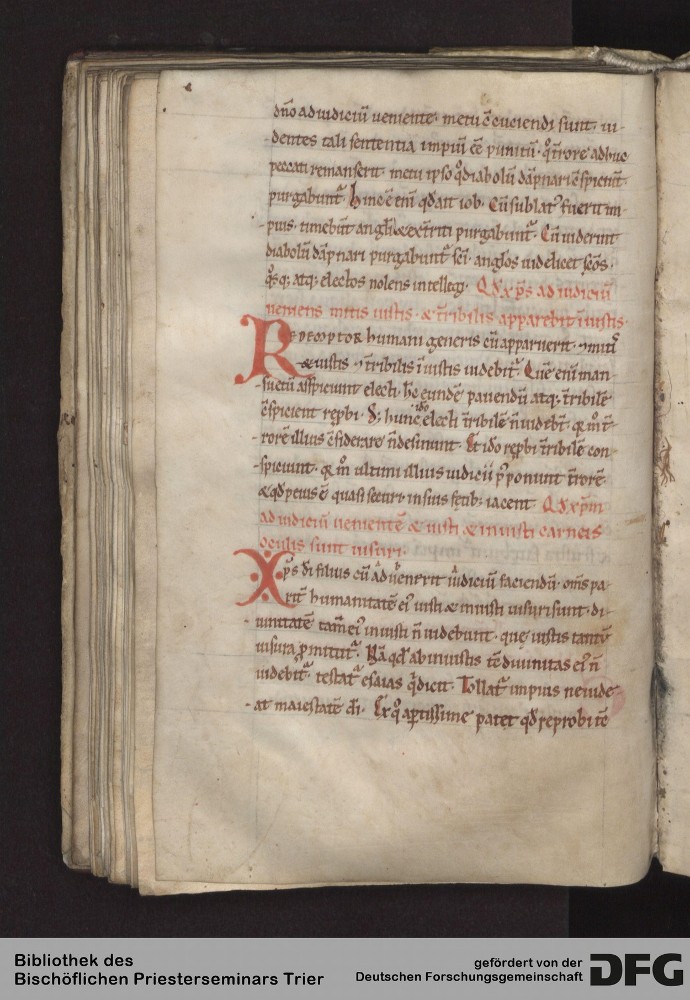 dn̄o ad iudiciū ueniente. metu c̄cuciendi sunt. ui-
dentes tali sententia impiū ēē punitū. q̊ t̄rore adhuc
peccati remanserit. metu ipso q̊d diabolū dāpnari c̄spiciūt
purgabunt᷑. hinc ē eni̅ qđ ait iob. Cū sublatꝰ fuerit im-
pius. timebūt angli & ext̄riti purgabunt᷑. Cū uiderint
diabolū dāpnari purgabunt᷑ sc̄i. anglos uidelicet sc̄os.
atq; electos nolens intellegi. Qđ xp̄s ad iudiciū
ueniens mitis iustis. & t̄ribilis apparebit iniustis.
Redemptor humani generis cū apparuerit. & mitis
& iustis & t̄ribilis īiustis uidebit᷑. Quē eni̅ man-
suetū asspiciunt electi. hc̄ eundē pauendū atq; t̄ribilē
c̄spicient rep̱bi. S; hunc ido electi t̄ribilē n̄ uidebt̄. q̄m t̄-
rorē illius c̄siderare n̄ desinunt. Et ido rep̱bi t̄ribilē con-
spiciunt. q̄m ultimi illius iudicii p̄ponunt t̄rorē
& qđ peius ē quasi securi in suis iacent. Qđ xp̄m
ad iudiciū uenientē & iusti & iniusti carneis
oculis sunt uisuri.
Xp̄s dī filius cū aduenerit iudiciū faciendū. om̄s pa-
rit̄ humanitatē eiꝰ iusti & iniusti uisuri sunt. di-
uinitatē tam̄ eiꝰ iniusti n̄ uidebunt. quę iustis tantū
uisura p̱mittit᷑. Nā qđ ab iniustis diuinitas eiꝰ n̄
uidebit᷑. testat᷑ esaias dicit. Tollat᷑ impius ne uide-
at maiestatē dī. Ex q̊ ap̱tissime patet qđ reprobi
Bibliothek des
Bischöflichen Priesterseminars Trier
gefördert von der
Deutschen Forschungsgemeinschaft
DFG